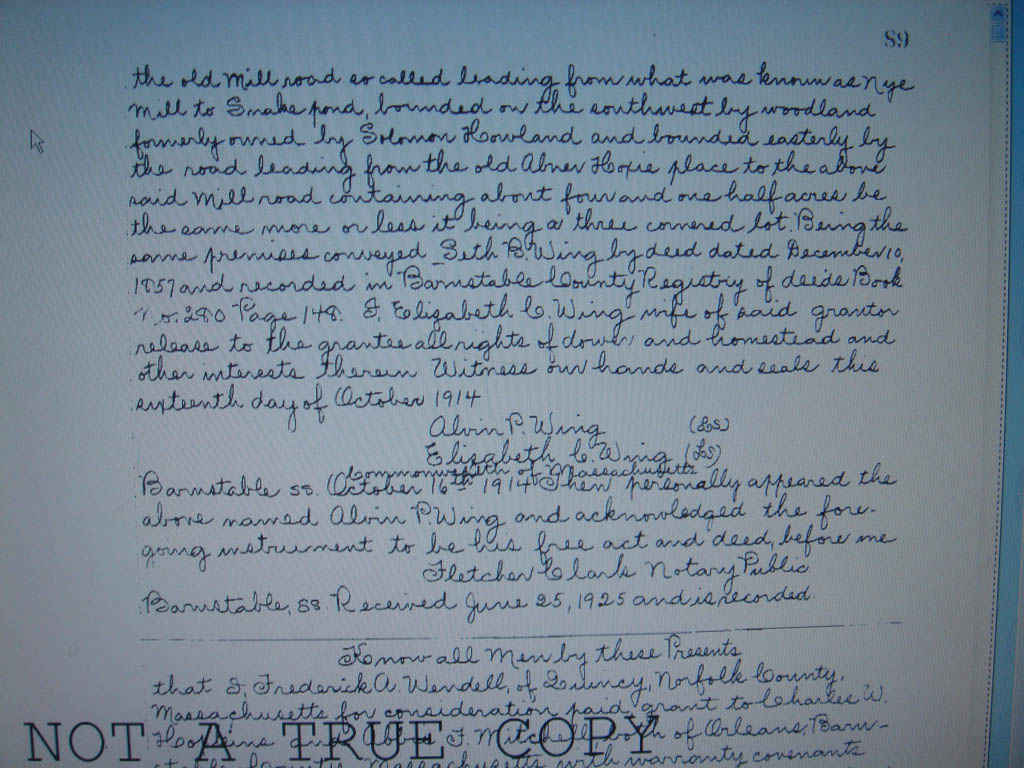 89
the old Mill road so called leading from what was known as Nye
Mill to Snake pond, bounded on the southwest by woodland
formerly owned by Solomon Howland and bounded easterly by
the road leading from the old Abner Hoxie place to the above
said Mill road containing about four and one half acres be
the same more or less it being a three cornered lot. Being the
same premises conveyed Seth B. Wing by deed dated December 10,
1857 and recorded in Barnstable County Registry of deeds Book
No. 280 Page 148. I, Elizabeth C. Wing wife of said grantor
release to the grantee all rights of dower and homestead and
other interests therein Witness our hands and seals this
sixteenth day of October 1914
Alvin P. Wing (LS)
Elizabeth C. Wing (LS)
Commonwealth of Massachusetts
Barnstable ss. October 16th 1914 Then personally appeared the
above named Alvin P. Wing and acknowledged the fore-
going instrument to be his free act and deed, before me
Fletcher Clark Notary Public
Barnstable, ss. Received June 25, 1925 and is recorded.
Know all Men by these Presents
that I, Frederick A. Wendell, of Quincy, Norfolk County,
Massachusetts for consideration paid grant to Charles W.
F. Mitchell both of Orleans, Barn-
Massachusetts with warranty covenants
NOT A TRUE COPY